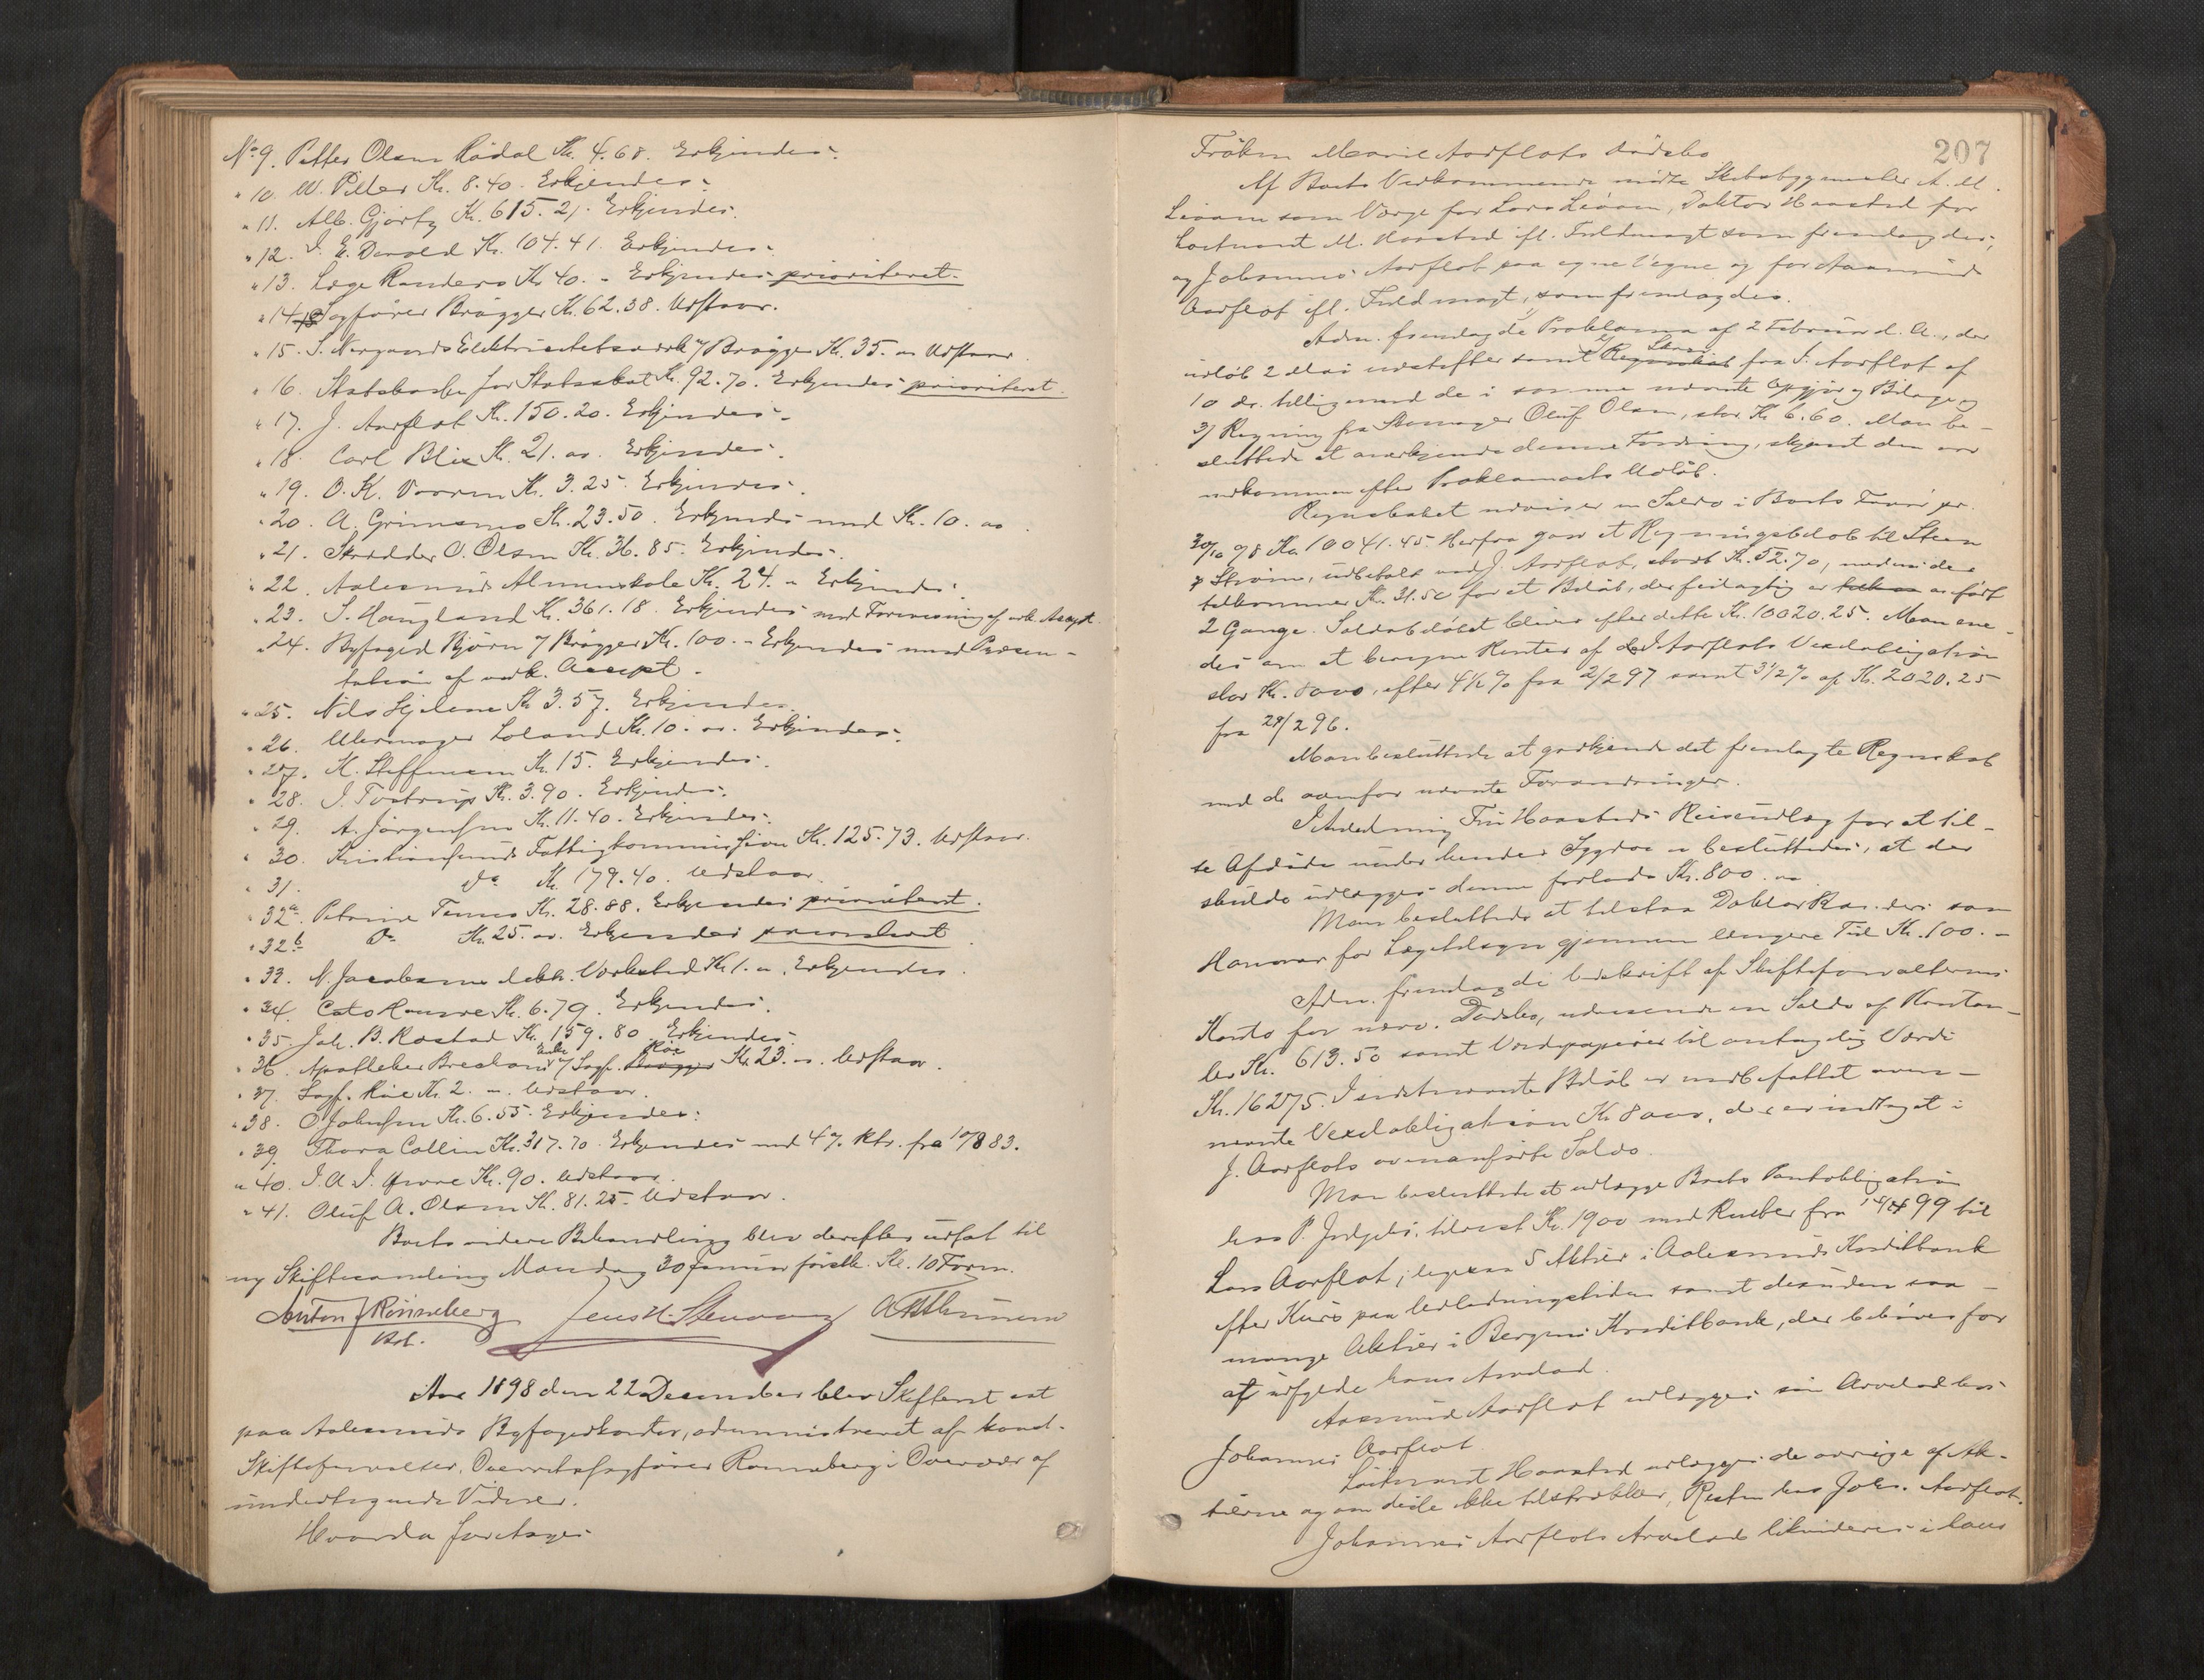 No 9. Petter Olsen Rødal Kr. 4.68. Erkjendes.
" 10. W. Piller Kr. 8.40. Erkjendes.
" 11. Alb. Gjørtz Kr. 615.21. Erkjendes.
" 12. I. E. Devold Kr. 104.41. Erkjendes.
" 13. Læge Randers Kr. 40. - Erkjendes prioriteret.
" 14. Sagfører Brøgger Kr. 62.38. Udstaar.
" 15. S. Nørgaards Elektricitetsværk / Brøgger Kr. 35. - Udstaar.
" 16. Statskassen for Statsskat Kr. 92.70. Erkjendes prioriteret.
" 17. J. Aarflot Kr. 150.20. Erkjendes.
" 18. Carl Blix Kr. 21. - Erkjendes.
" 19. O. K. Vorren Kr. 3.25. Erkjendes.
" 20. A. Grimsmo Kr. 23.50. Erkjendes med Kr. 10. -
" 21. Skrædder O. Olsen Kr. 36.85. Erkjendes.
" 22. Aalesunds Almenskole Kr. 24. - Erkjendes.
" 23. S. Haugland Kr. 361.18. Erkjendes med Forevisning af vedk. Accept.
" 24. Byfoged Bjørn / Brøgger Kr. 100. - Erkjendes mod Præsen-
tation af vedk. Accept.
" 25. Nils Hjelme Kr. 3.57. Erkjendes.
" 26. Uhrmager Loland Kr. 10. - Erkjendes.
" 27. K. Steffensen Kr. 15. Erkjendes.
" 28. I. Tostrup Kr. 3.90. Erkjendes.
" 29. A. Jørgensen Kr. 11.40. Erkjendes.
" 30. Kristiansunds Fattigkommission Kr. 125.73. Udstaar.
" 31. do Kr. 179.40. Udstaar.
" 32a. Petrine Kr. 28.88. Erkjendes prioriteret.
" 32b do Kr. 25. - Erkjendes prioriteret.
" 33. N. Jacobsens elektr. Værksted Kr. 1. - Erkjendes.
" 34. Cato Kr. 6.79. Erkjendes.
" 35. Joh. B. Rostad Kr. 159.80. Erkjendes.
" 36. Apotheker Enke / Sagf. Røe Kr. 23. - Udstaar.
" 37. Sagf. Røe Kr. 2. - Udstaar.
" 38. O Johnsen Kr. 6.55. Erkjendes.
" 39. Thora Collin Kr. 317.70. Erkjendes med 4 % Rtr. fra 10/8 83.
" 40. I. A. I. Kr. 90. Udstaar.
" 41. Oluf A. Olsen Kr. 81.25. Udstaar.
Boets videre Behandling blev derefter udsat til
ny Skiftesamling Mandag 30 Januar førstk. Kl. 10 Form.
Anton J Rønneberg Jens H. Stenvaag
kst.
Aar 1898 den 22 December blev Skifteret sat
paa Aalesunds Byfogedkontor, administreret af konst.
Skifteforvalter, Overretssagfører Rønneberg i Overvær af
undertegnede Vidner.
Hvorda foretoges
207
Frøken Marie Aarflots Dødsbo
Af Boets Vedkommende mødte Skibsbygmester A. M.
Liaaen som Værge for Lars Liaaen, Doktor Haasted for
Løitnant M. Haasted ifl. Fuldmagt som fremlagdes,
og Johannes Aarflot paa egne Vegne og for Aasmund
Aarflot ifl. Fuldmagt, som fremlagdes.
Adm. fremlagde 1) Proklama af 2 Februar d. A., der
udløb 2 Mai sidstefter samt 2) fra J. Aarflot af
10 ds. tilligemed de i samme nævnte Opgjør og Bilage og
3) Regning fra Skomager Oluf Olsen, stor Kr. 6.60. Man be-
sluttede at anerkjende denne Fordring, skjønt den var
indkommen efter Proklamaets Udløb.
Regnskabet udviser en Saldo i Boets Favør pr.
30/10 98 Kr. 10041.45. Herfra gaar et Regningsbeløb til Steen
& Strøm, udbetalt ved J. Aarflot, stort Kr. 52.70, medens der
tilkommer Kr. 31.50 for et Beløb, der feilagtig er anført
2 Gange. Saldobeløbet bliver efter dette Kr. 10020.25. Man ene-
des om at beregne Renter af J. Aarflots Vexelobligation
stor Kr. 8000, efter 4½ % fra 2/2 97 samt 3½ % af Kr. 2020.25
fra 29/2 96.
Man besluttede at godkjende det fremlagte Regnskab
med de ovenfor nævnte Forandringer.
I Anledning Fru Haasteds Reiseudlæg for at til-
se Afdøde under hendes Sygdom besluttedes, at der
skulde udlægges denne forlods Kr. 800. -
Man besluttede at tilstaa Doktor Randers som
Honorar for Lægetilsyn gjennem længere Tid Kr. 100. -
Adm. fremlagde Udskrift af Skifteforvalterens
Konto for nærv. Dødsbo, udvisende en Saldo af Kontan-
ter Kr. 613.50 samt Værdipapirer til antagelig Værdi
Kr. 16275. I sidstnævnte Beløb er indbefattet oven-
nævnte Vexelobligation Kr. 8000, der er indtaget i
J. Aarflots ovenanførte Saldo.
Man besluttede at udlægge Boets Pantobligation
hos P. tilrest Kr. 1900 med Renter fra 14/4 99 til
Lars Aarflot, ligesaa 5 Aktier i Aalesunds Kreditbank
efter Kurs paa Udlodningstiden samt desuden saa
mange Aktier i Bergens Kreditbank, der behøves for
at udfylde hans Arvelod.
Aasmund Aarflot udlægges sin Arvelod hos
Johannes Aarflot.
Løitnant Haasted udlægges de øvrige af Ak-
tierne og om disse ikke tilstrækker, Resten hos Johs. Aarflot.
Johannes Aarflots Arvelod likvideres i hans